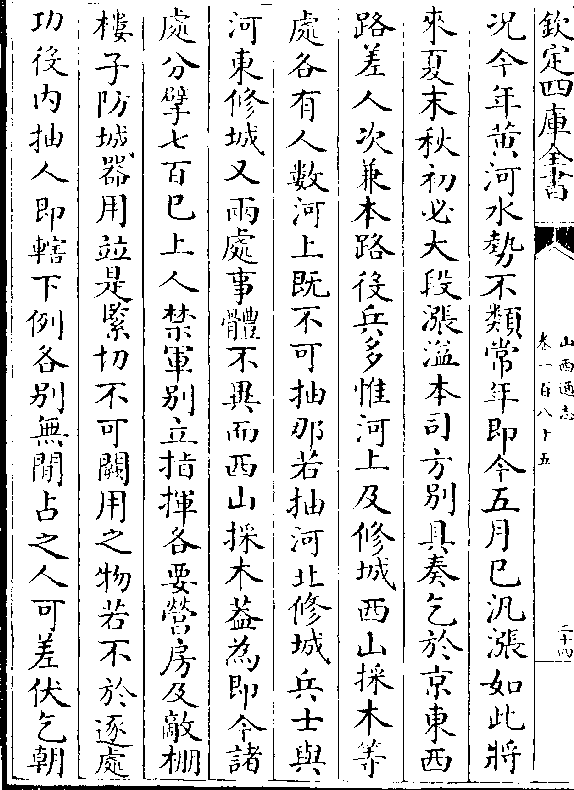 欽定四庫全書
山西通志
卷一百八十五
二十四
况今年黄河水勢不類常年即今五月已汎漲如此將
來夏末秋初必大段漲溢本司方别具奏乞於京東西
路差人次兼本路役兵多惟河上及修城西山採木等
處各有人數河上既不可抽那若抽河北修城兵士與
河東修城又兩處事體不異而西山採木葢為即今諸
處分擘七百已上人禁軍别立指揮各要營房及敵棚
樓子防城器用竝是緊切不可闕用之物若不於逐處
功役内抽人即轄下例各别無閒占之人可差伏乞朝